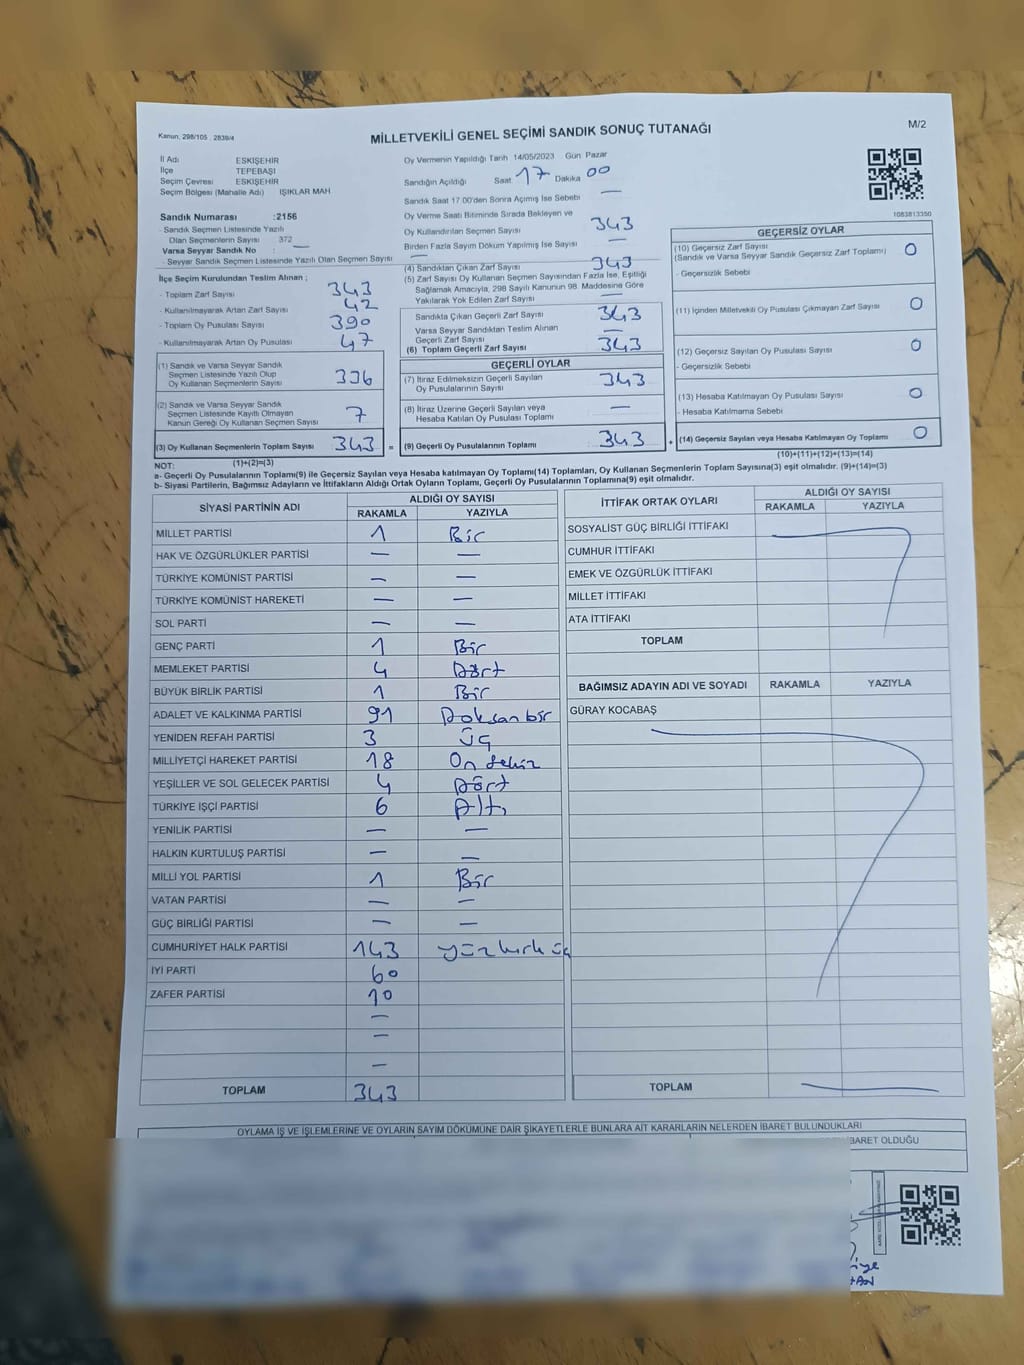 Kanun, 298/105 , 2839/4
MİLLETVEKİLİ GENEL SEÇİMİ SANDIK SONUÇ TUTANAĞI
M/2
İl Adı ESKİŞEHİR
İlçe TEPEBAŞI
Seçim Çevresi ESKİŞEHİR
Seçim Bölgesi (Mahalle Adı) IŞIKLAR MAH
Sandık Numarası :2156
- Sandık Seçmen Listesinde Yazılı
Olan Seçmenlerin Sayısı 372
Varsa Seyyar Sandık No : —
- Seyyar Sandık Seçmen Listesinde Yazılı Olan Seçmen Sayısı —
İlçe Seçim Kurulundan Teslim Alınan ;
- Toplam Zarf Sayısı 343
- Kullanılmayarak Artan Zarf Sayısı 42
- Toplam Oy Pusulası Sayısı 390
- Kullanılmayarak Artan Oy Pusulası 47
(1) Sandık ve Varsa Seyyar Sandık
Seçmen Listesinde Yazılı Olup
Oy Kullanan Seçmenlerin Sayısı 336
(2) Sandık ve Varsa Seyyar Sandık
Seçmen Listesinde Kayıtlı Olmayan
Kanun Gereği Oy Kullanan Seçmen Sayısı 7
(3) Oy Kullanan Seçmenlerin Toplam Sayısı 343 =
(1)+(2)=(3)
Oy Vermenin Yapıldığı Tarih 14/05/2023 Gün Pazar
Sandığın Açıldığı Saat 17 Dakika 00
Sandık Saat 17.00'den Sonra Açılmış İse Sebebi —
Oy Verme Saati Bitiminde Sırada Bekleyen ve
Oy Kullandırılan Seçmen Sayısı 343
Birden Fazla Sayım Döküm Yapılmış İse Sayısı —
(4) Sandıktan Çıkan Zarf Sayısı 343
(5) Zarf Sayısı Oy Kullanan Seçmen Sayısından Fazla İse, Eşitliği
Sağlamak Amacıyla, 298 Sayılı Kanunun 98. Maddesine Göre
Yakılarak Yok Edilen Zarf Sayısı —
Sandıkta Çıkan Geçerli Zarf Sayısı 343
Varsa Seyyar Sandıktan Teslim Alınan
Geçerli Zarf Sayısı —
(6) Toplam Geçerli Zarf Sayısı 343
GEÇERLİ OYLAR
(7) İtiraz Edilmeksizin Geçerli Sayılan
Oy Pusulalarının Sayısı 343
(8) İtiraz Üzerine Geçerli Sayılan veya
Hesaba Katılan Oy Pusulası Toplamı —
(9) Geçerli Oy Pusulalarının Toplamı 343 +
1083813350
GEÇERSİZ OYLAR
(10) Geçersiz Zarf Sayısı
(Sandık ve Varsa Seyyar Sandık Geçersiz Zarf Toplamı) 0
- Geçersizlik Sebebi
(11) İçinden Milletvekili Oy Pusulası Çıkmayan Zarf Sayısı 0
(12) Geçersiz Sayılan Oy Pusulası Sayısı 0
- Geçersizlik Sebebi
(13) Hesaba Katılmayan Oy Pusulası Sayısı 0
- Hesaba Katılmama Sebebi
(14) Geçersiz Sayılan veya Hesaba Katılmayan Oy Toplamı 0
(10)+(11)+(12)+(13)=(14)
NOT:
a- Geçerli Oy Pusulalarının Toplamı(9) ile Geçersiz Sayılan veya Hesaba katılmayan Oy Toplamı(14) Toplamları, Oy Kullanan Seçmenlerin Toplam Sayısına(3) eşit olmalıdır. (9)+(14)=(3)
b- Siyasi Partilerin, Bağımsız Adayların ve İttifakların Aldığı Ortak Oyların Toplamı, Geçerli Oy Pusulalarının Toplamına(9) eşit olmalıdır.
SİYASİ PARTİNİN ADI ALDIĞI OY SAYISI
RAKAMLA YAZIYLA
MİLLET PARTİSİ 1 Bir
HAK VE ÖZGÜRLÜKLER PARTİSİ — —
TÜRKİYE KOMÜNİST PARTİSİ — —
TÜRKİYE KOMÜNİST HAREKETİ — —
SOL PARTİ — —
GENÇ PARTİ 1 Bir
MEMLEKET PARTİSİ 4 Dört
BÜYÜK BİRLİK PARTİSİ 1 Bir
ADALET VE KALKINMA PARTİSİ 91 Doksan bir
YENİDEN REFAH PARTİSİ 3 Üç
MİLLİYETÇİ HAREKET PARTİSİ 18 On sekiz
YEŞİLLER VE SOL GELECEK PARTİSİ 4 Dört
TÜRKİYE İŞÇİ PARTİSİ 6 Altı
YENİLİK PARTİSİ — —
HALKIN KURTULUŞ PARTİSİ — —
MİLLİ YOL PARTİSİ 1 Bir
VATAN PARTİSİ — —
GÜÇ BİRLİĞİ PARTİSİ — —
CUMHURİYET HALK PARTİSİ 143 yüz kırk üç
İYİ PARTİ 60
ZAFER PARTİSİ 10
—
—
—
TOPLAM 343
İTTİFAK ORTAK OYLARI ALDIĞI OY SAYISI
RAKAMLA YAZIYLA
SOSYALİST GÜÇ BİRLİĞİ İTTİFAKI
CUMHUR İTTİFAKI
EMEK VE ÖZGÜRLÜK İTTİFAKI
MİLLET İTTİFAKI
ATA İTTİFAKI
TOPLAM
BAĞIMSIZ ADAYIN ADI VE SOYADI RAKAMLA YAZIYLA
GÜRAY KOCABAŞ
TOPLAM —
OYLAMA İŞ VE İŞLEMLERİNE VE OYLARIN SAYIM DÖKÜMÜNE DAİR ŞİKAYETLERLE BUNLARA AİT KARARLARIN NELERDEN İBARET BULUNDUKLARI
İBARET OLDUĞU